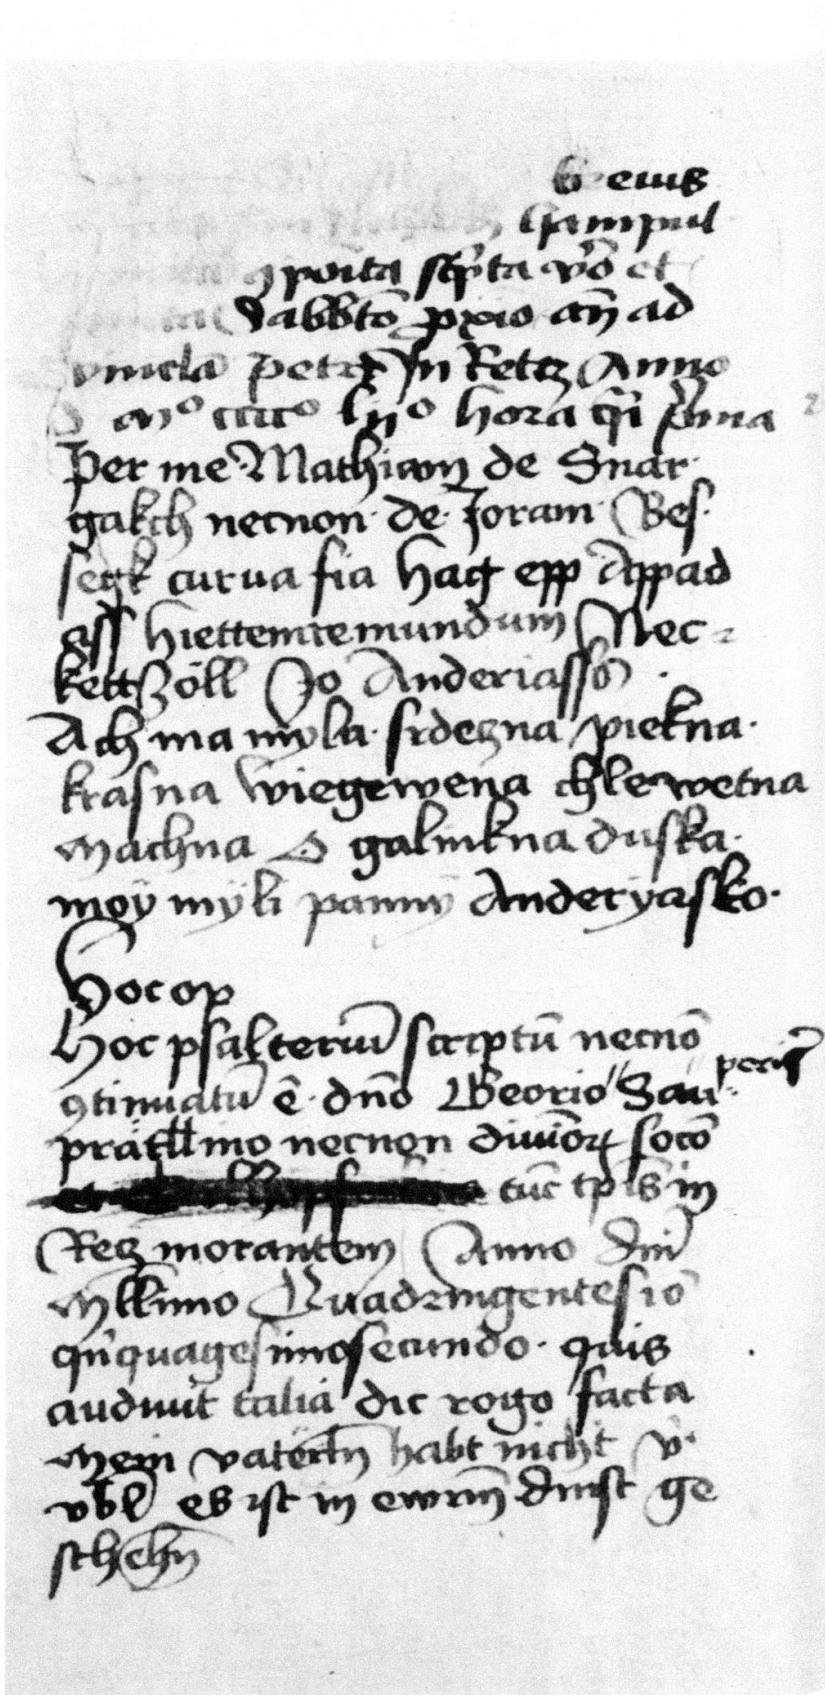 eius
hampnil
9poita scpta vo et
Sabbto pxio an ad
vincla petri In Retcz Anno
mo cccco lijo hora qsi pma
Per me Mathiam de Snar
gakch necnon de Joram Bes
segk curva fia hag epp Appad
ass hiettemtemundum Nec
kettzöll Jo Anderiassō
Ach ma myla srdezna piekna
krasna wiegewena chlewetna
machna O galinkna duska
moÿ mÿli pannÿ Anderÿasko
hoc op
Hoc psalteriū scriptū necnō
9tinuatū ē dno Georio Sau
peris
prätllino necnon diuiōr socō
et tūc tpis in
Recz morantem Anno dni
Mllimo Quadringentesiō
quiquagesimosecundo quis
audiuit talia dic rogo facta
mein vaterlin habt nicht v
vbl es ist in ewrm dinst ge
schehn